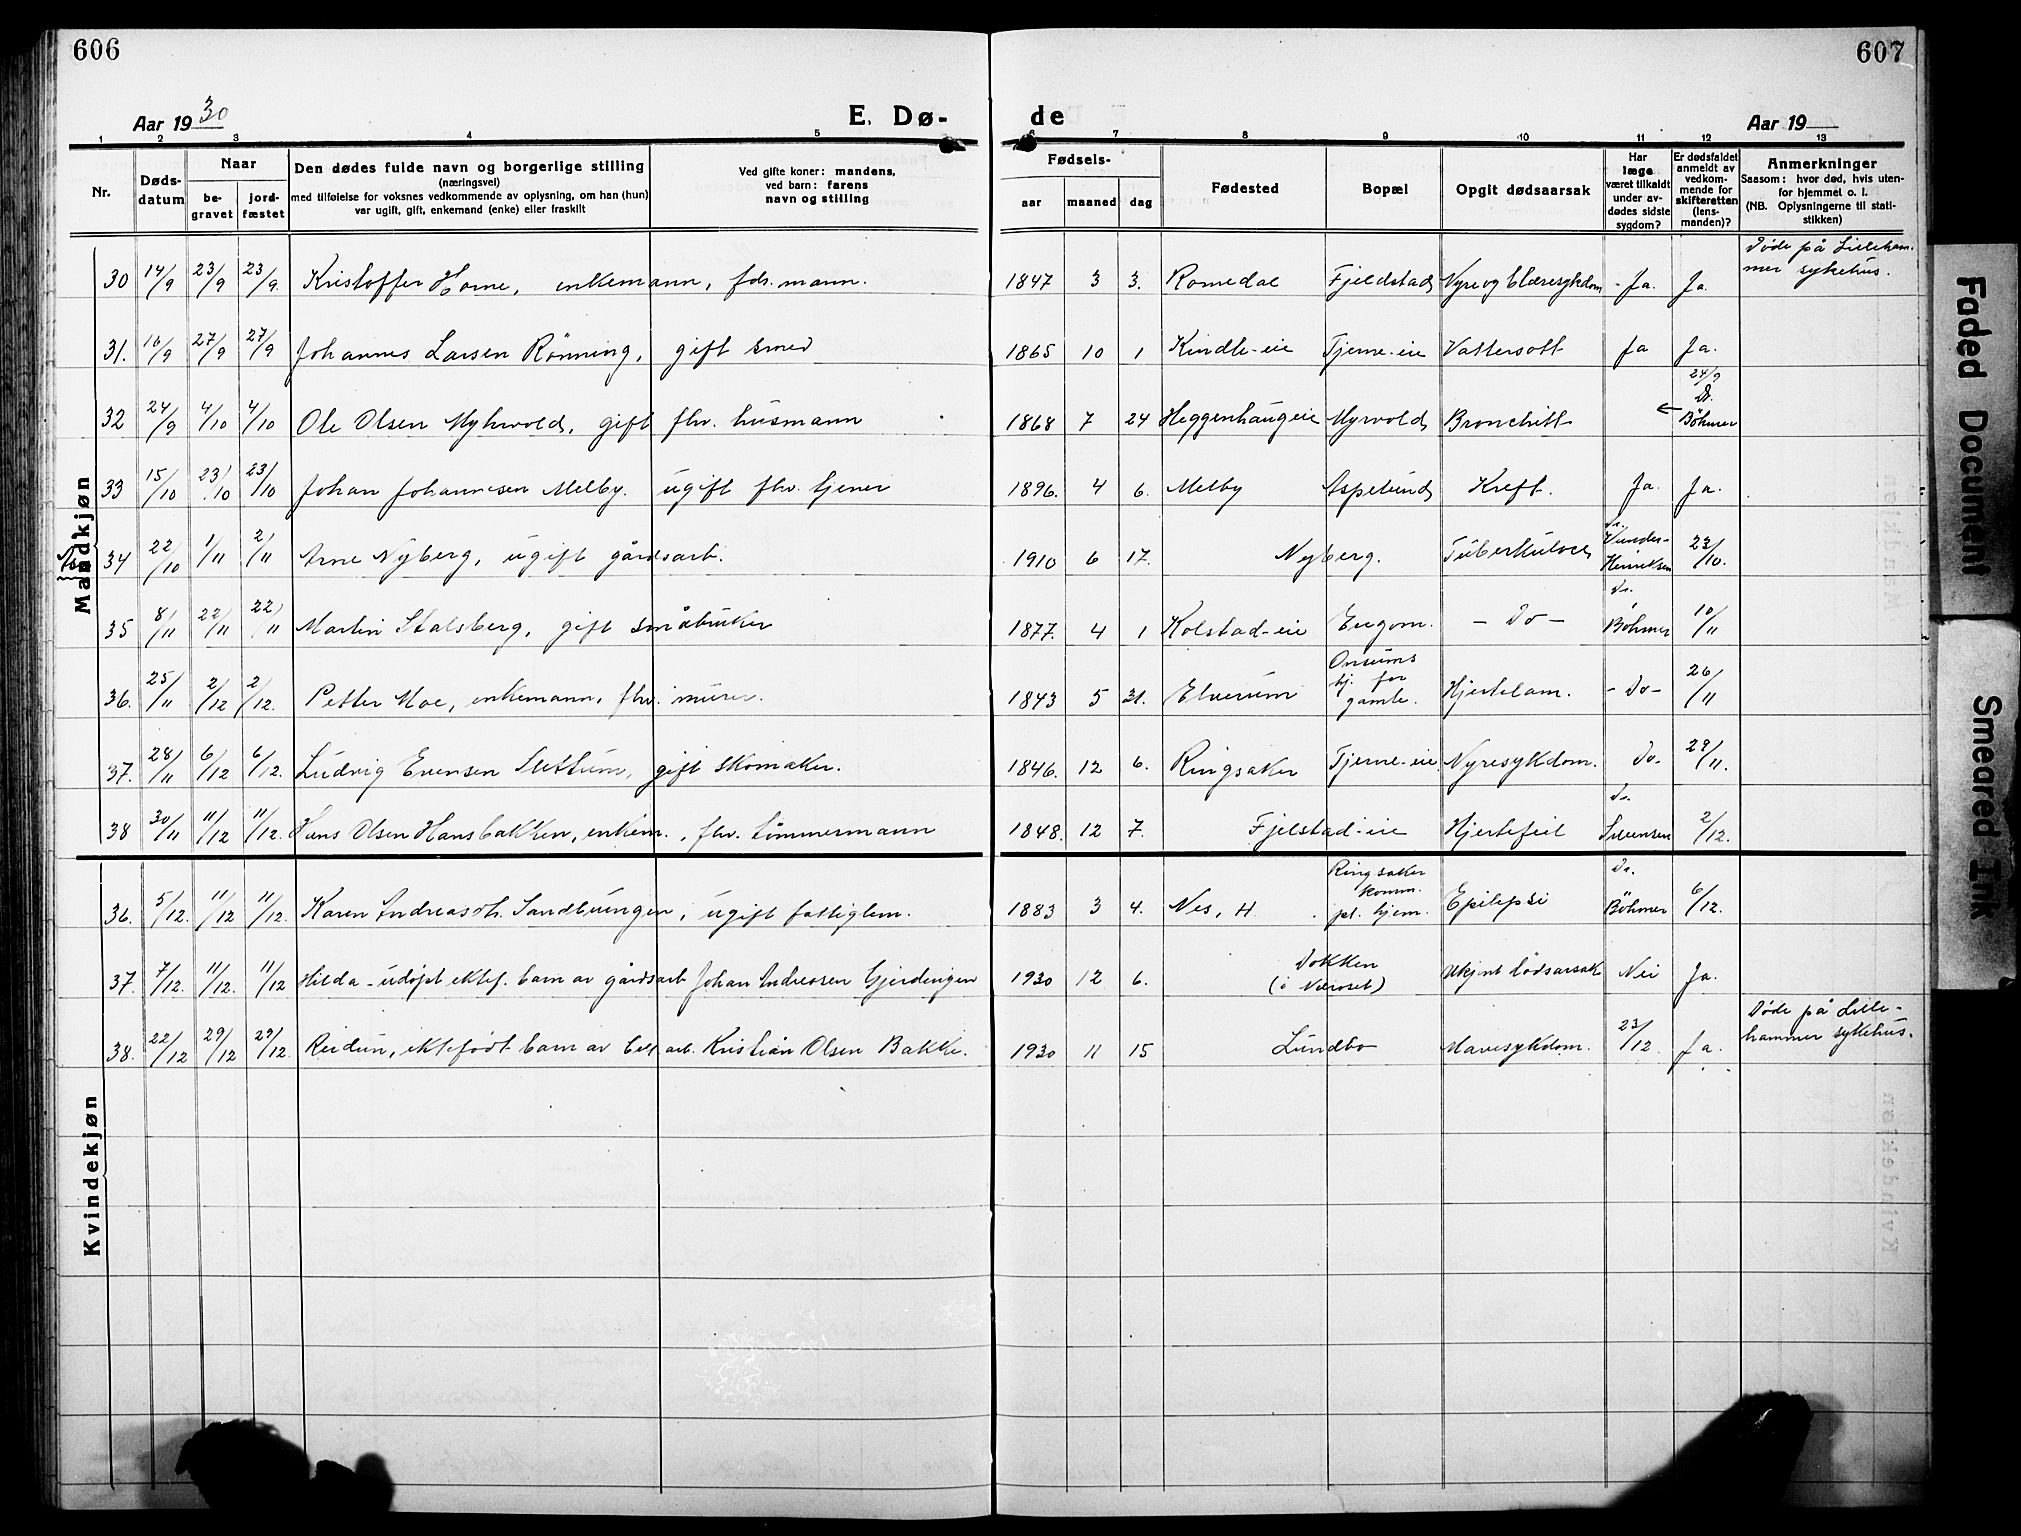 606
607
Aar 1930
E. Dø-
de
Aar 19
1 2 3 4 5 6 7 8 9 10 11 12 13
Nr.
Døds-
datum
Naar
be-
gravet
jord-
fæstet
Den dødes fulde navn og borgerlige stilling
(næringsvei)
med tilføielse for voksnes vedkommende av oplysning, om han (hun)
var ugift, gift, enkemand (enke) eller fraskilt
Ved gifte koner: mandens,
ved barn: farens
navn og stilling
Fødsels-
aar maaned dag
Fødested
Bopæl
Opgit dødsaarsak
Har
læge
været tilkaldt
under av-
dødes sidste
sygdom?
Er dødsfaldet
anmeldt av
vedkom-
mende for
skifteretten
(lens-
manden)?
Anmerkninger
Saasom: hvor død, hvis uten-
for hjemmet o. l.
(NB. Oplysningerne til stati-
stikken)
Mandkjøn
30 14/9 23/9 23/9. Kristoffer Horne, enkemann, fds. mann. 1847 3 3. Romedal Fjeldstad Nyre og blæresykdom - Ja. Ja. Døde på Lilleham-
mer sykehus.
31. 16/9 27/9 27/9 Johannes Larsen Rönning, gift smed 1865 10 1 Kindli-eie Tjerne-eie Vattersott Ja Ja.
32 24/9 4/10 4/10 Ole Olsen Myhrvold, gift fhv. husmann 1868 7 24 Heggenhaugeie Myrvold Bronchitt ← 24/9 Dr. Böhmer
33 15/10 23/10 23/10 Johan Johannesen Melby. ugift fhv. tjener 1896. 4 6. Melby Aspelund Kreft. Ja. Ja.
34 22/10 1/11 2/11 Arne Nyberg, ugift gårdsarb. 1910 6 17. Nyberg. Tuberkulose Dr. Wunder-
Henriksen 23/10.
35 8/11 22/11 22/11 Martin Stalsberg, gift småbruker 1877. 4 1 Kolstad-eie Engom. - Do - Dr. Böhmer 10/11
36. 25/11 2/12 2/12. Petter Moe, enkemann, fhv. murer. 1843 5 31. Elverum Onsums hj. for gamle. Hjertelam. - Do - 26/11
37. 28/11 6/12 6/12. Ludvig Evensen Slettum, gift skomaker. 1846. 12 6. Ringsaker Tjerne-eie Nyresykdom. Do - 29/11.
38 30/11 11/12 11/12. Hans Olsen Hansbakken, enkem., fhv. tömmermann 1848. 12 7. Fjelstad-eie Hjertefeil Dr. 2/12.
Kvindekjøn
36. 5/12. 11/12 11/12. Karen Andreasdt. ugift fattiglem. 1883 3 4. Nes, H. Ringsaker komm. pl. hjem. Epilepsi Dr. Böhmer 6/12.
37. 7/12. 11/12. 11/12 Hilda - udøpt ektef. barn av gårdsarb. Johan Andreasen Gjerdingen 1930 12 6. Dokken
(i Næroset) Ukjent dødsarsak Nei Ja.
38. 22/12 29/12 29/12. Reidun, ektefødt barn av arb. Kristian Olsen Bakke. 1930 11 15 Lundbo Mavesykdom. 23/12. Ja. Døde på Lille-
hammer sykehus.
Faded Document
Smeared Ink